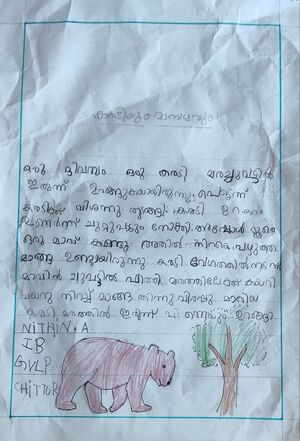 കരടിയും മാമ്പഴവും
ഒരു ദിവസം ഒരു കരടി മരച്ചുവട്ടിൽ
ഇരുന്ന് ഉറങ്ങുകയായിരുന്നു. പെട്ടന്ന്
കരടിക്ക് വിശന്നു തുടങ്ങി. കരടി ഉറക്കം
ഉണർന്ന് ചുറ്റുപാടും നോക്കി. അപ്പോൾ
ഒരു മാവ് കണ്ടു അതിൽ നിറയെ പഴുത്ത
മാങ്ങ ഉണ്ടായിരുന്നു കരടി വേഗത്തിൽ നടന്ന്
മാവിൻ ചുവട്ടിൽ എത്തി. മരത്തിലേക്ക് കയറി
വയറു നിറച്ച് മാങ്ങ തിന്നു വിശപ്പു മാറ്റിയ
കരടി മരത്തിൽ ഇരുന്ന് ഉറങ്ങി
NITHIN. A
IB
GVLP
CHITTUR